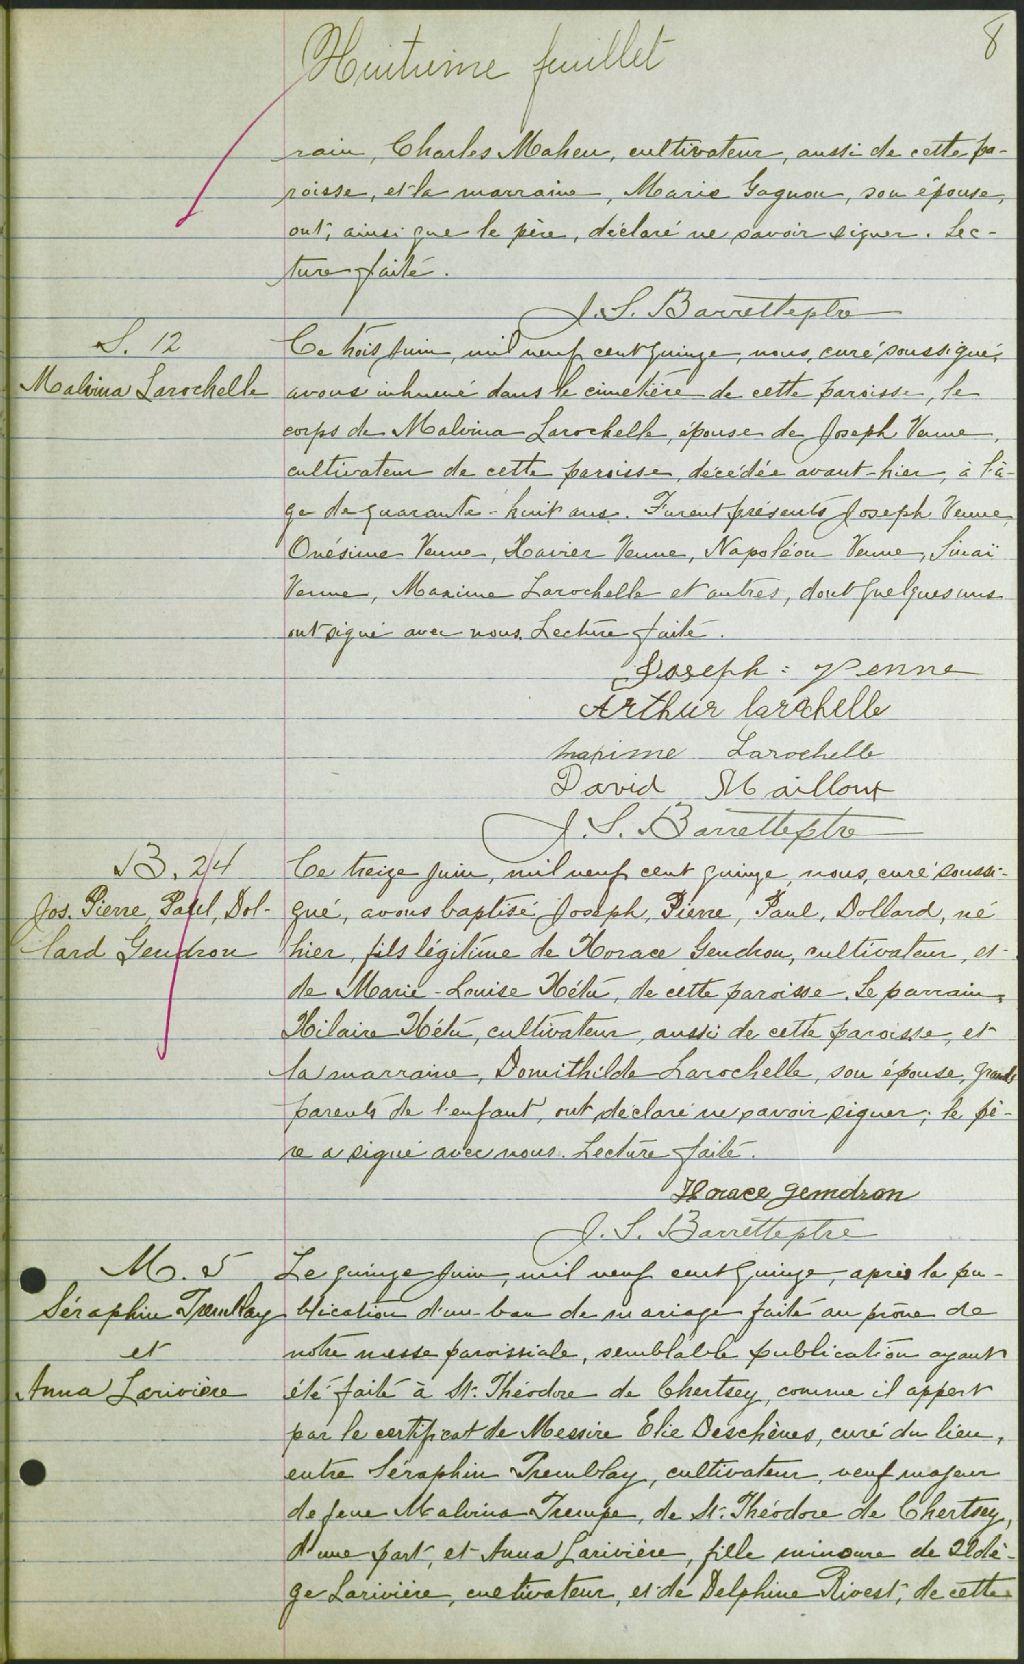 8
Huitième feuillet
rain, Charles Maheu, cultivateur, aussi de cette pa-
roisse, et la marraine, Marie Gagnon, son épouse,
ont, ainsi que le père, déclaré ne savoir signer. Lec-
ture faite.
J. S. Barrette ptre
S. 12
Malvina Larochelle
Ce trois juin, mil neuf cent quinze, nous, curé soussigné,
avons inhumé dans le cimetière de cette paroisse, le
corps de Malvina Larochelle, épouse de Joseph Venne,
cultivateur de cette paroisse, décédée avant-hier, à l'â-
ge de quarante-huit ans. Furent présents Joseph Venne,
Onésime Venne, Xavier Venne, Napoléon Venne, Sinaï
Venne, Maxime Larochelle et autres, dont quelques uns
ont signé avec nous. Lecture faite.
Joseph = Venne
Arthur larchelle
maxime Larochelle
David Mailloux
J. S. Barrette ptre
B. 24
Jos. Pierre, Paul, Dol-
lard Gendron
Ce treize juin, mil neuf cent quinze, nous, curé soussi-
gné, avons baptisé Joseph, Pierre, Paul, Dollard, né
hier, fils légitime de Horace Gendron, cultivateur, et
de Marie-Louise Hétu, de cette paroisse. Le parrain,
Hilaire Hétu, cultivateur, aussi de cette paroisse, et
la marraine, Domithilde Larochelle, son épouse, grands
parents de l'enfant, ont déclaré ne savoir signer; le pè-
re a signé avec nous. Lecture faite.
Horace gemdron
J. S. Barrette ptre
M. 5
Séraphin Tremblay
et
Anna Larivière
Le quinze juin, mil neuf cent quinze, après la pu-
blication d'un ban de mariage faite au prône de
notre messe paroissiale, semblable publication ayant
été faite à St. Théodore de Chertsey, comme il appert
par le certificat de Messire Elie Deschênes, curé du lieu,
entre Séraphin Tremblay, cultivateur, veuf majeur
de feue Malvina Trempe, de St. Théodore de Chertsey,
d'une part, et Anna Larivière, fille mineure de
ge Larivière, cultivateur, et de Delphine Rivest, de cette